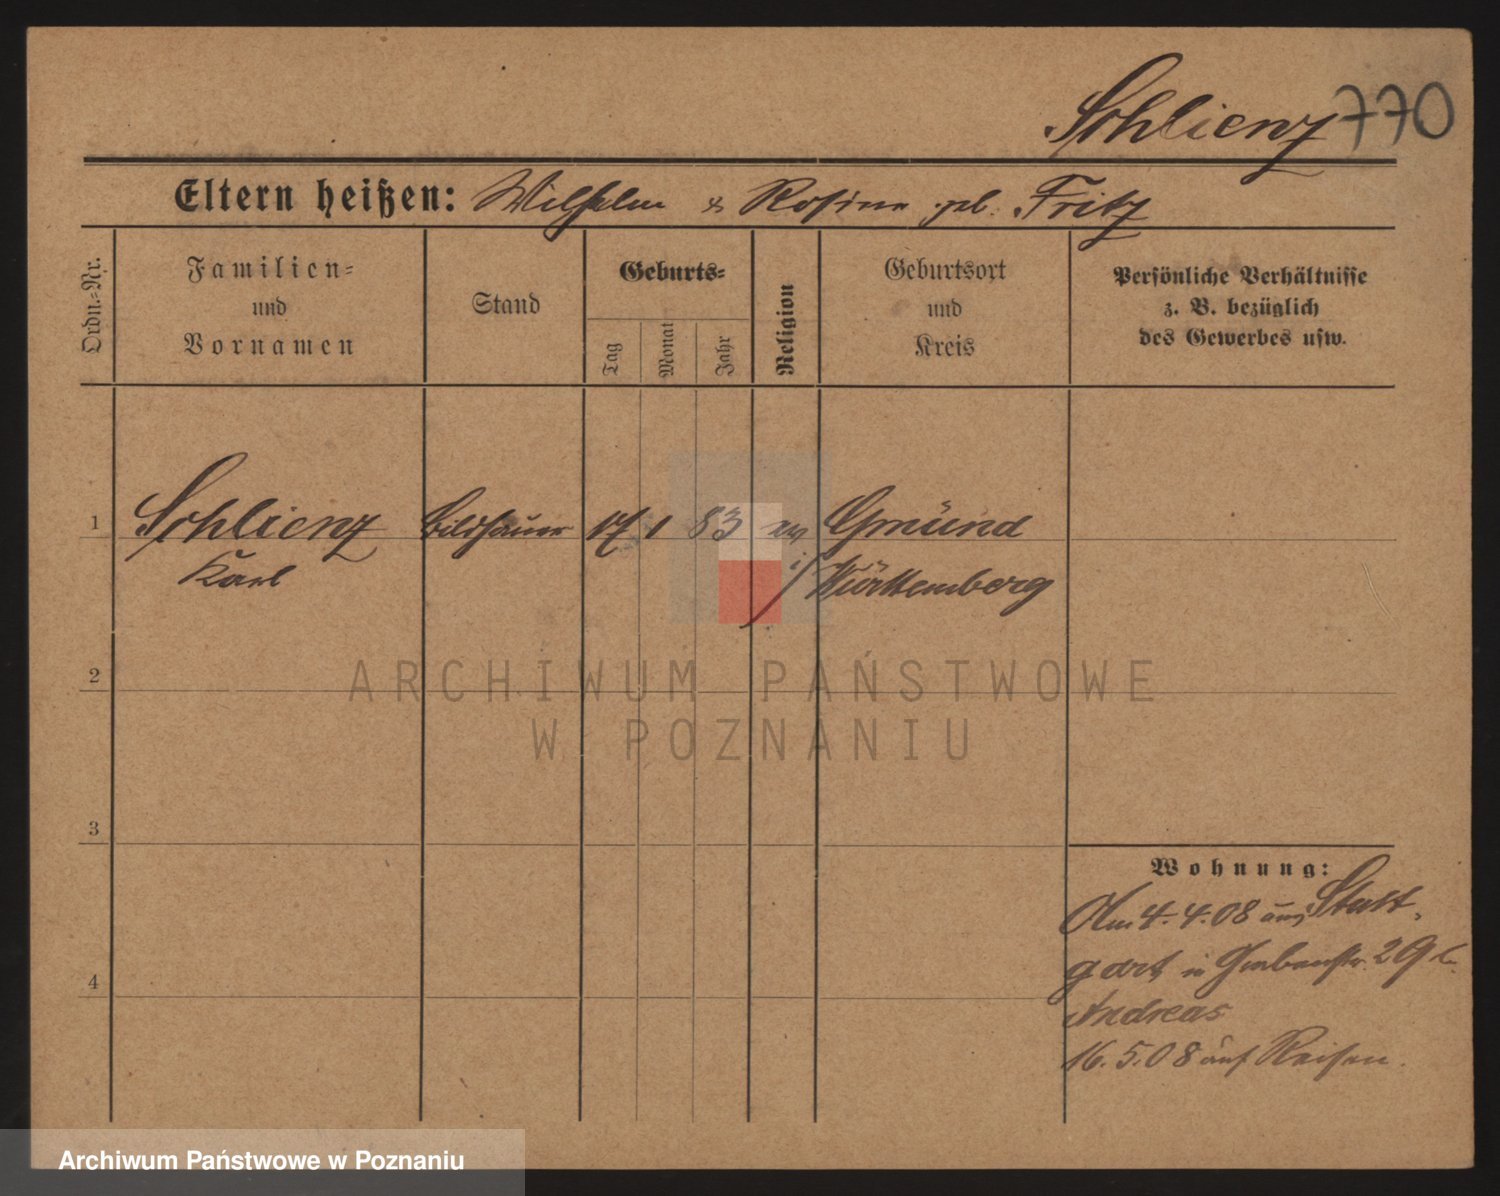 Schlienz 770
Eltern heißen: Wilhelm & Rosine geb. Fritz
Ordn.-Nr.
Familien-
und
Vornamen
Stand
Geburts-
Tag
Monat
Jahr
Religion
Geburtsort
und
Kreis
Persönliche Verhältnisse
z. B. bezüglich
des Gewerbes usw.
1 Schlienz Bildhauer 17 1 83 Gmünd
Karl i/ Württemberg
ARCHIWUM PAŃSTWOWE
W POZNANIU
2
3
4
Wohnung:
Am 4.4.08 aus Stutt-
gart in Grabenstr. 29
Andreas
16.5.08 auf Reisen.
Archiwum Państwowe w Poznaniu